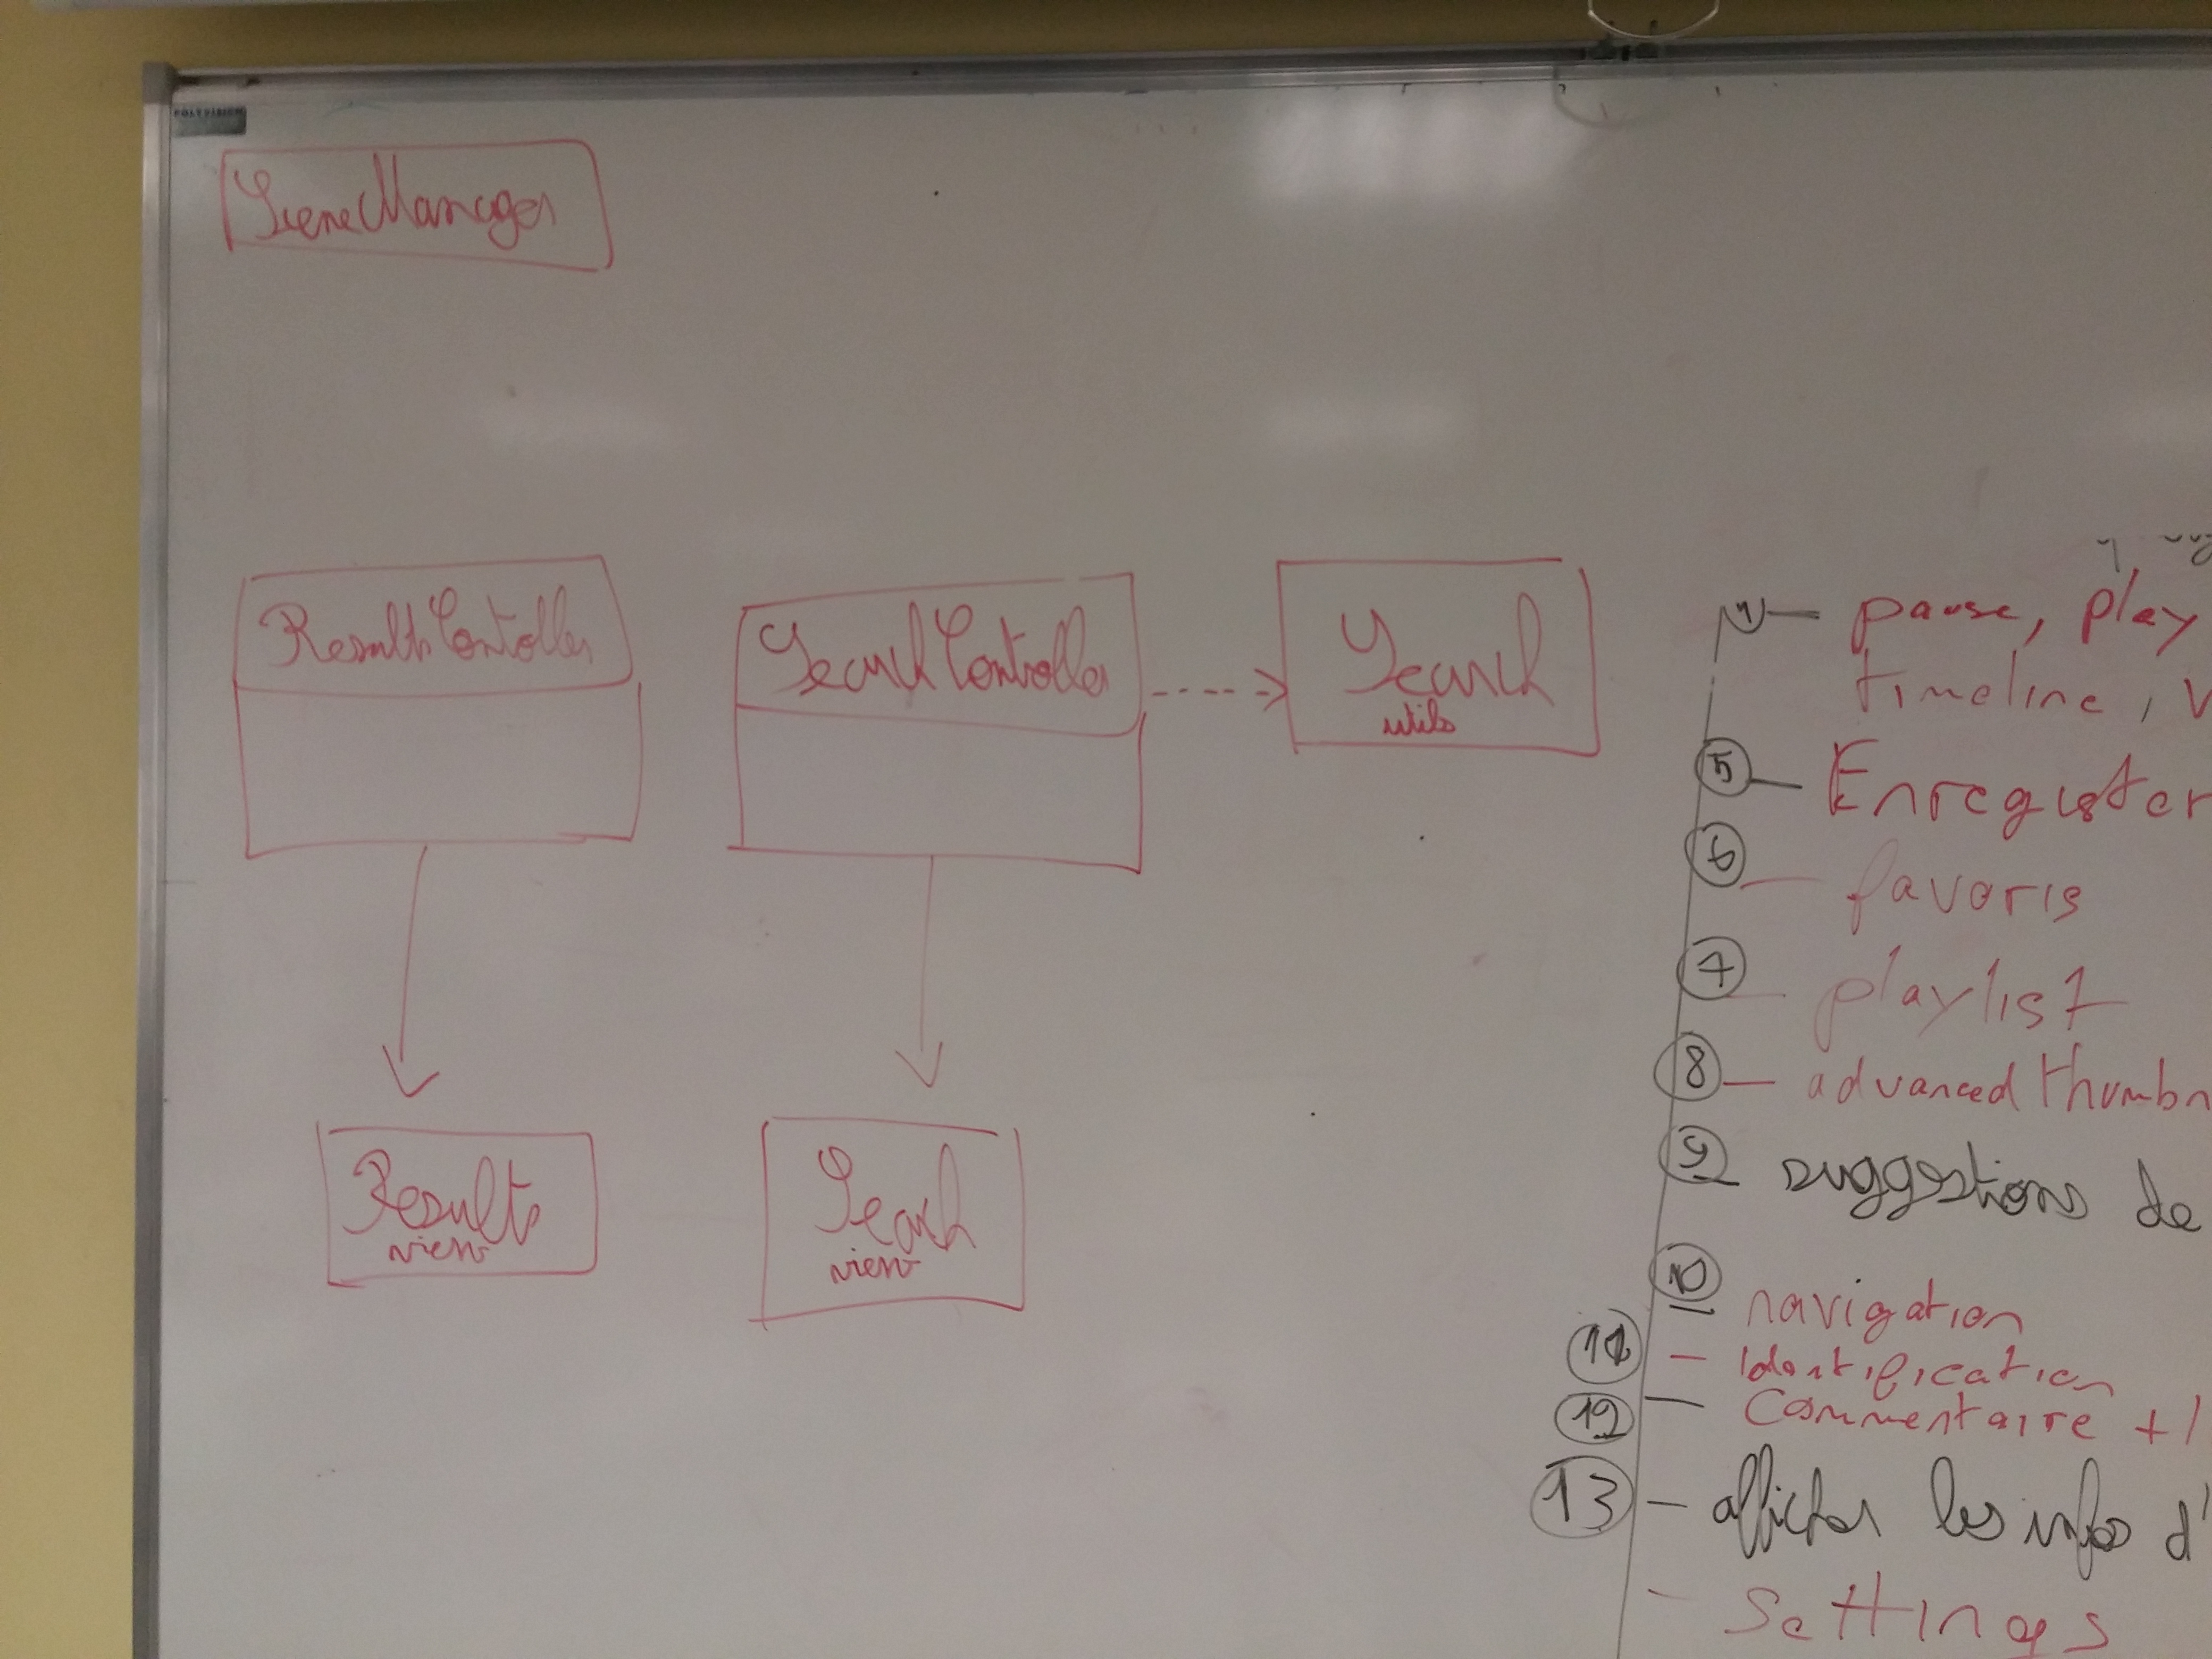 POLYVISION
SceneManager
ResultsContoller
SearchController
Search
utils
Results
view
Search
view
pause, play
timeline, V
5 - Enregister
6 - favoris
7 - playlist
8 - advanced thumbn
9 suggestions de
10 - navigation
11 - Identification
12 - Commentaire +/
13 - afficher les infos d'
- Settings